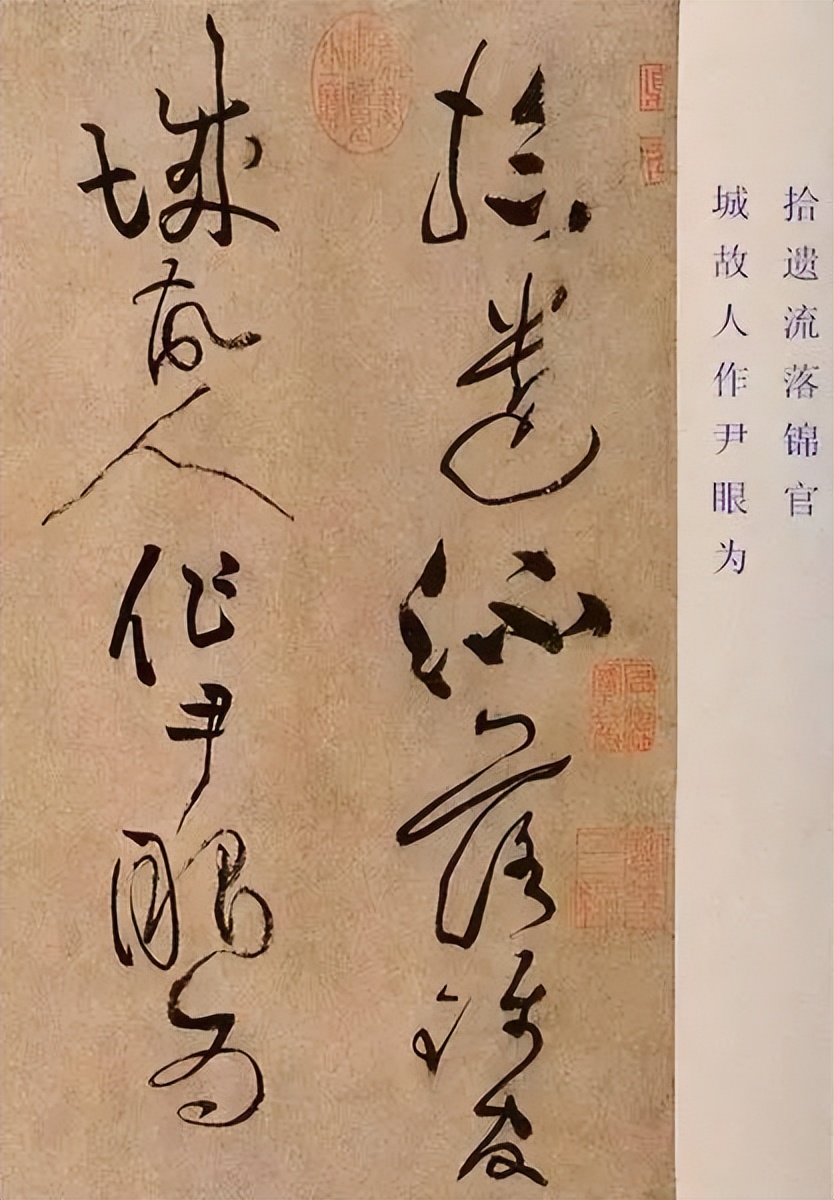 拾遗流落锦官
城故人作尹眼为
拾遺流落錦官
城故人作尹眼為